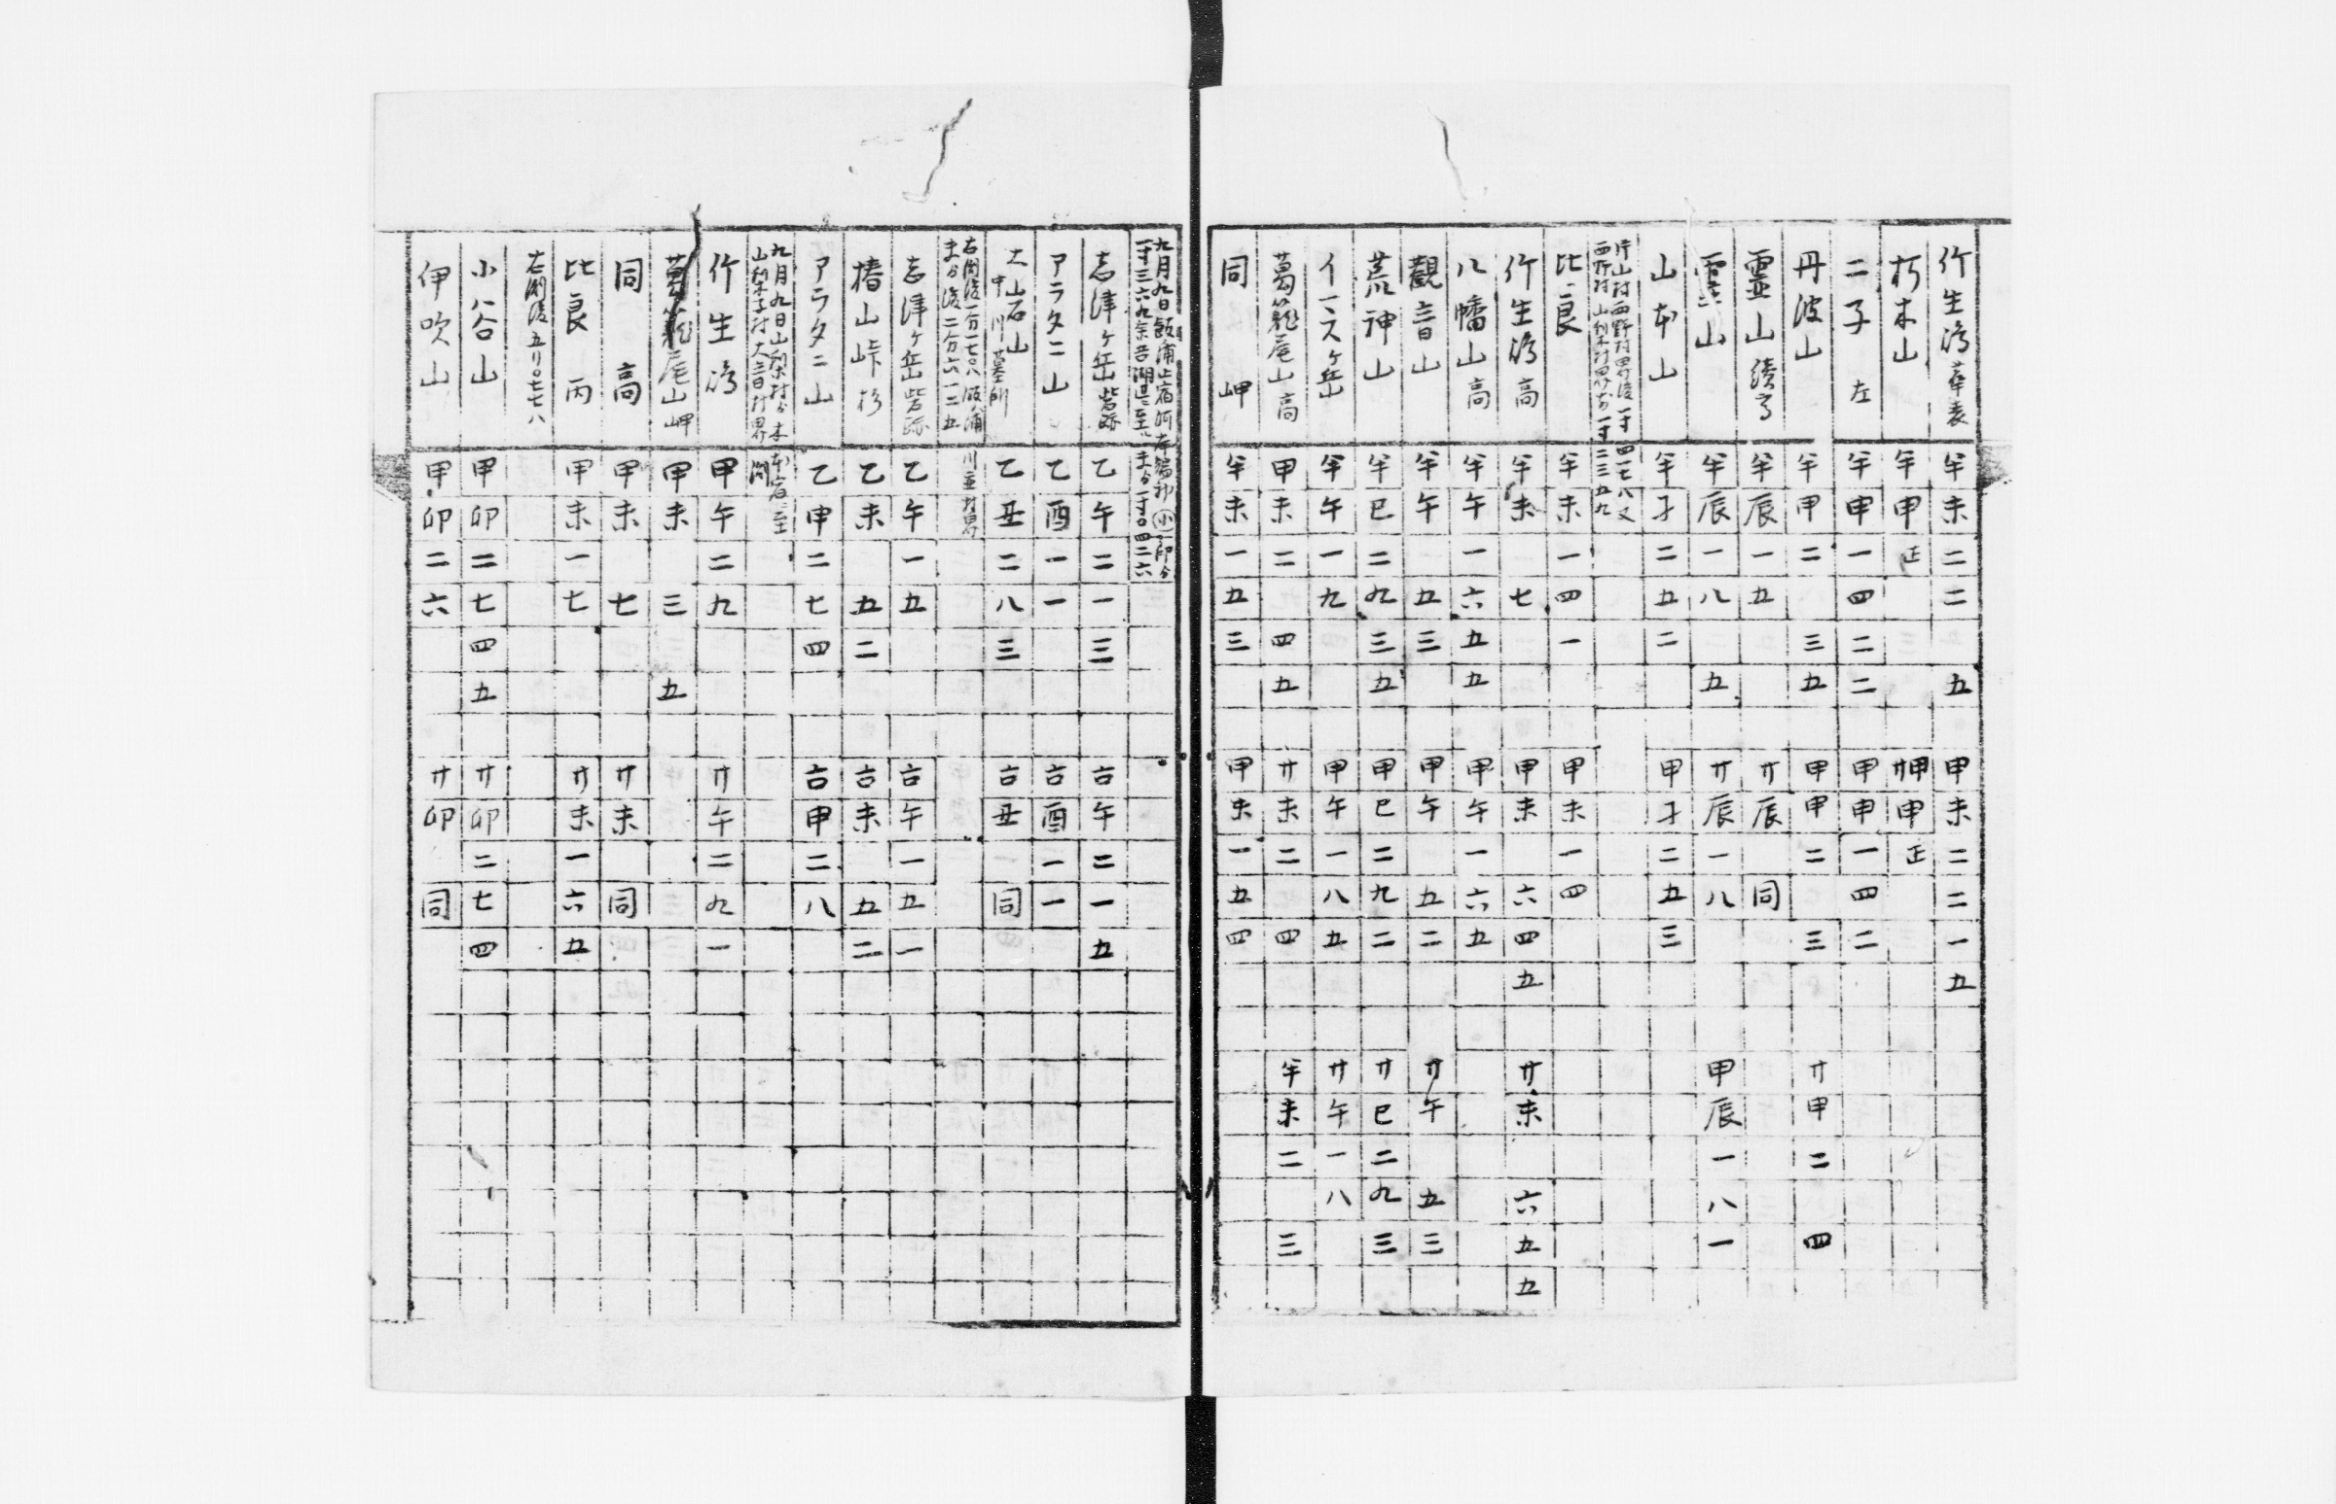 竹生嶋華表 半未二二 五 甲未二二一五
朽木山 半申正 廿甲申正
二子 左 半申一四二二 甲申一四二
丹波山 半甲二 三五 甲甲二 三 廿甲二 四
靈山續高 半辰一五 廿辰 同
靈山 半辰一八 五 廿辰一八 甲辰一八一
山本山 半子二五二 甲子二五三
片山村西野村界後一寸四一七八又
西野村山梨木村界 一寸二三五九
比良 半未一四一 甲未一四
竹生嶋高 半未 七 甲未 六四五 廿未 六五五
八幡山高 半午一六五五 甲午一六五
觀音山 半午 五三 甲午 五二 廿午 五三
荒神山 半巳二九三五 甲巳二九二 廿巳二九三
イ一ス ケ岳 半午一九 甲午一八五 廿午一八
葛籠尾山高 甲未二 四五 廿未二 四 半未二 三
同 岬 半未一五三 甲未一五四
九月九日飯浦止宿 小印ゟ
一寸三六九余吾湖 至ル ゟ一寸〇四二六
志津ヶ岳砦跡 乙午二一三 吉午二一五
アラタニ山 乙酉一一 吉酉一一
大岩山 中川墓所 乙丑二八三 吉丑 同
右開後一分一七〇八飯浦
ゟ後二分六一二五 川並村界
志津ヶ岳砦跡 乙午一五 吉午一五一
椿山峠杉 乙未 五二 吉未 五二
アラタニ山 乙申二七四 吉申二八
九月九日山梨村ゟ木 本宿 至
山梨子村大音村界 開
竹生嶋 甲午二九 廿午二九一
葛籠尾山岬 甲未 三 五
同 高 甲未 七 廿未 同
比良 丙 甲未一七 廿未一六五
右開後五リ〇七七八
小谷山 甲卯二七四五 廿卯二七四
伊吹山 甲卯二六 廿卯 同